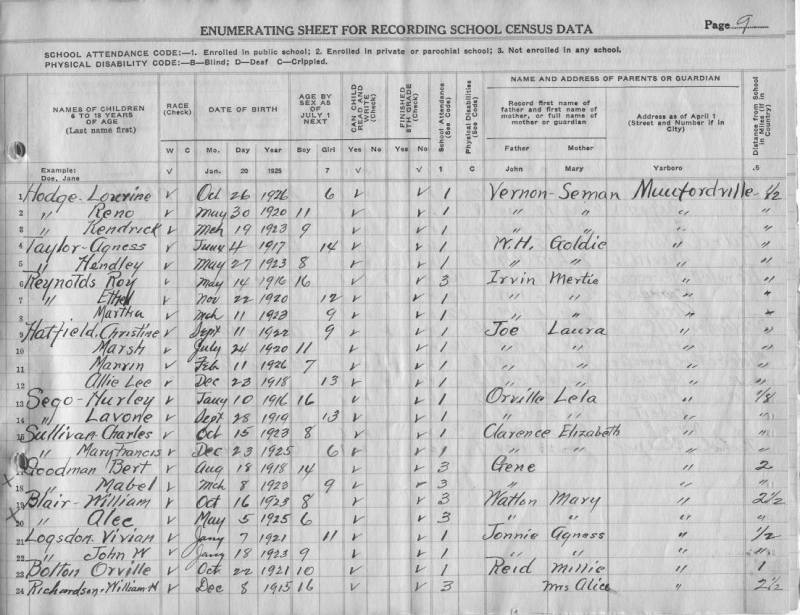 ENUMERATING SHEET FOR RECORDING SCHOOL CENSUS DATA Page 9
SCHOOL ATTENDANCE CODE:—1. Enrolled in public school; 2. Enrolled in private or parochial school; 3. Not enrolled in any school.
PHYSICAL DISABILITY CODE:—B—Blind; D—Deaf C—Crippled.
NAMES OF CHILDREN 6 TO 18 YEARS OF AGE (Last name first)
RACE (Check)
W C
DATE OF BIRTH
Mo. Day Year
AGE BY SEX AS OF JULY 1 NEXT
Boy Girl
CAN CHILD READ AND WRITE (Check)
Yes No
FINISHED 8TH GRADE (Check)
Yes No
School Attendance (See Code)
Physical Disabilities (See Code)
NAME AND ADDRESS OF PARENTS OR GUARDIAN
Record first name of father and first name of mother, or full name of mother or guardian
Father Mother
Address as of April 1 (Street and Number if in City)
Distance from School in Miles (If in Country)
Example: Doe, Jane V Jan. 20 1925 7 V V 1 C John Mary Yarboro .5
1 Hodge-Loverine v Oct 26 1926 6 v v 1 Vernon-Seman Munfordville 1/2
2 " Reno v May 30 1920 11 v v 1 " " " "
3 " Kendrick v Mch 19 1923 9 v v 1 " " " "
4 Taylor-Agness v June 4 1917 14 v v 1 W.H. Goldie " "
5 " Hendley v May 27 1923 8 v v 1 " " " "
6 Reynolds Roy v May 14 1916 16 v v 3 Irvin Mertie " "
7 " Ethel v Nov 22 1920 12 v v 1 " " " "
8 Martha v Mch 11 1923 9 v v 1 " " " "
9 Hatfield, Christine v Sept 11 1922 9 v v 1 Joe Laura " "
10 Marsh v July 24 1920 11 v v 1 " " " "
11 Marvin v Feb 11 1926 7 v v 1 " " " "
12 Allie Lee v Dec 23 1918 13 v v 1 " " " "
13 Sego-Hurley v Jany 10 1916 16 v v 1 Orville Lela " 1/8
14 " Lavone v Sept 28 1919 13 v v 1 " " " "
15 Sullivan-Charles v Oct 15 1923 8 v v 1 Clarence Elizabeth " "
" Mary Francis v Dec 23 1925 6 v v 1 " " " "
Goodman Bert v Aug 18 1918 14 v v 3 Gene " 2
x 18 " Mabel v Mch 8 1923 9 v v 3 " " "
19 Blair-William v Oct 16 1923 8 v v 3 Watton Mary " 2 1/2
x 20 " Alec v May 5 1925 6 v v 3 " " " "
21 Logsdon-Vivian v Jany 7 1921 11 v v 1 Jonnie Agness " 1/2
22 " John W v Jany 18 1923 9 v v 1 " " " "
23 Bolton Orville v Oct 22 1921 10 v v 1 Reid Millie " 1
24 Richardson-William H v Dec 8 1915 16 v v 3 Mrs Alice " 2 1/2